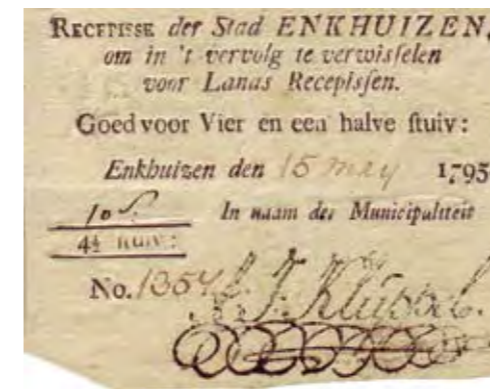 RECEPISSE der Stad ENKHUIZEN,
om in 't vervolg te verwisselen
voor Lands Recepissen.
Goed voor Vier en een halve stuiv:
Enkhuizen den 15 mey 1795
10 In naam der Municipaliteit
4½ stuiv:
No. 1354 Kluppel.